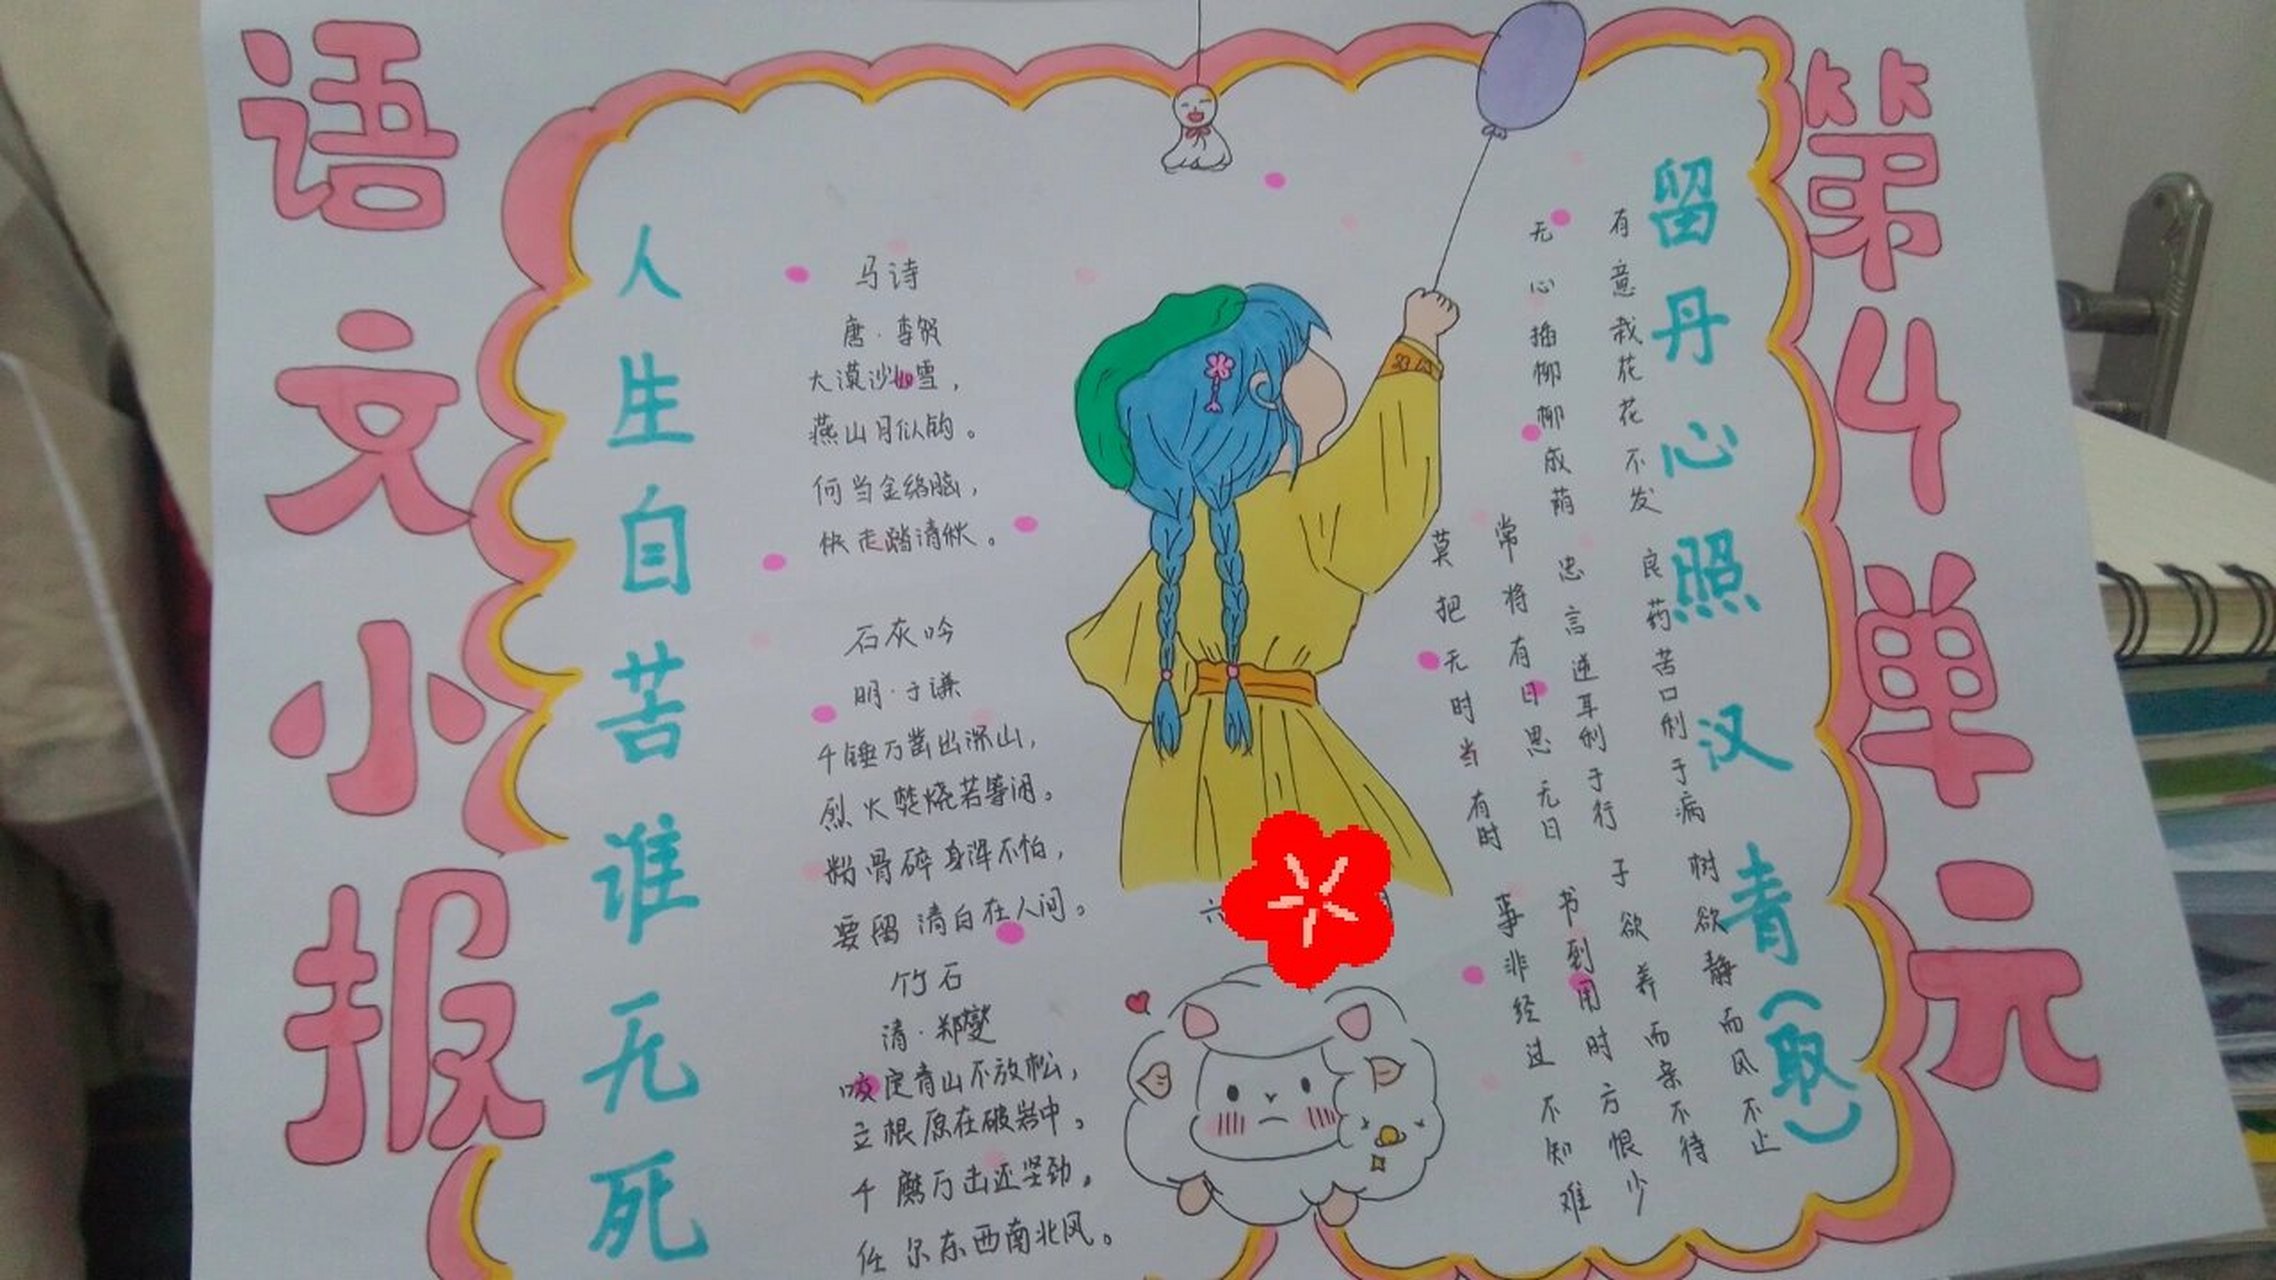 语文小报
第4单元
人生自苦谁无死
留丹心照汉青(取)
马诗
唐·李贺
大漠沙如雪,
燕山月似钩。
何当金络脑,
快走踏清秋。
石灰吟
明·于谦
千锤万凿出深山,
烈火焚烧若等闲。
粉骨碎身浑不怕,
要留清白在人间。
竹石
清·郑燮
咬定青山不放松,
立根原在破岩中。
千磨万击还坚劲,
任尔东西南北风。
有意栽花花不发
无心插柳柳成荫
良药苦口利于病
忠言逆耳利于行
常将有日思无日
莫把无时当有时
树欲静而风不止
子欲养而亲不待
书到用时方恨少
事非经过不知难
六